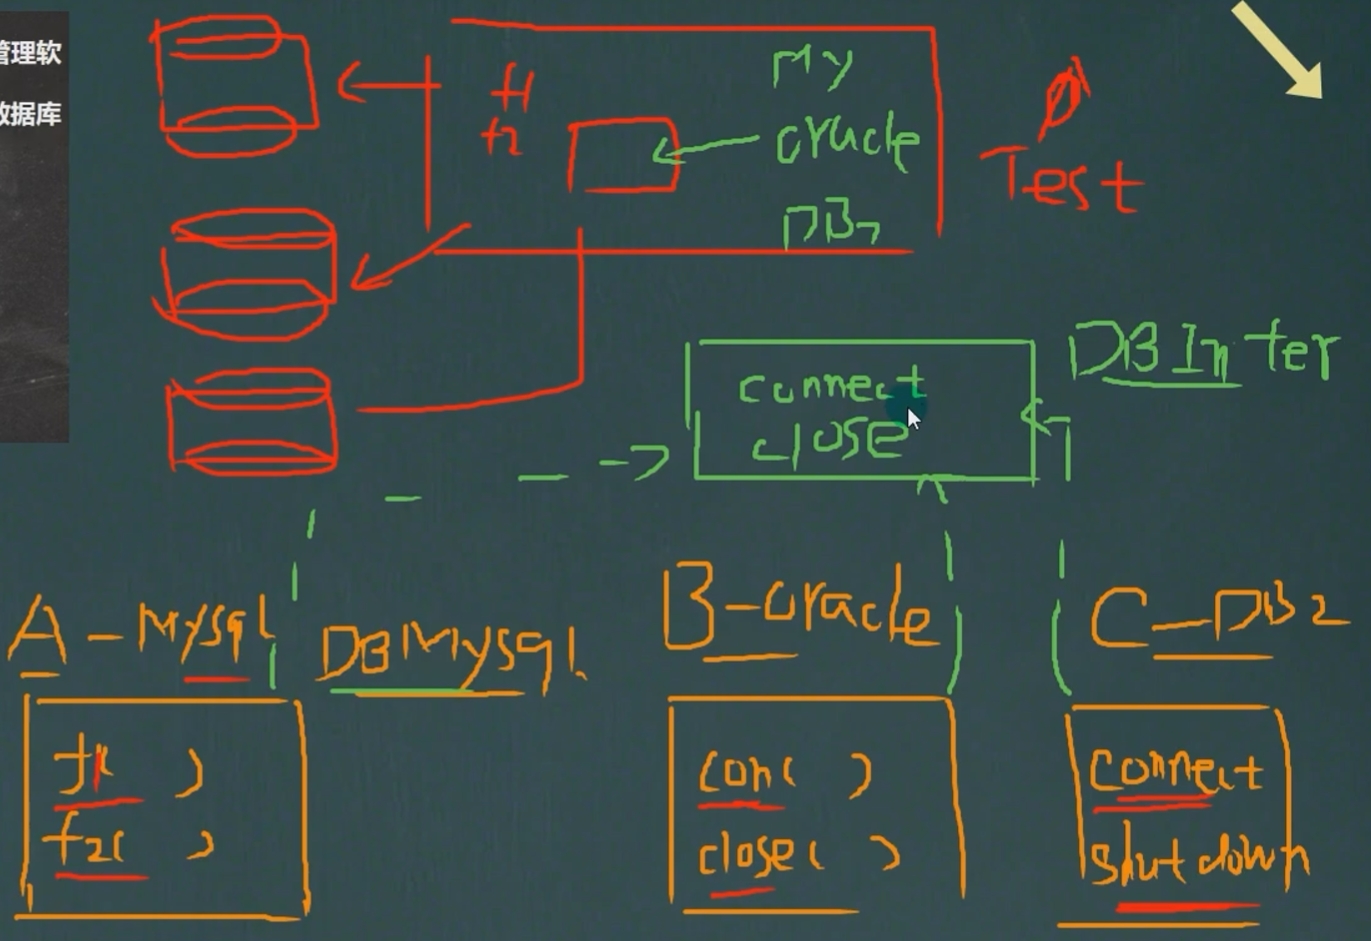 管理软
数据库
f1
f2
My
oracle
DB2
Test
DBInter
connect
close
A - Mysql
DBMysql
B-oracle
C-DB2
f1( )
f2( )
con( )
close( )
connect
shutdown